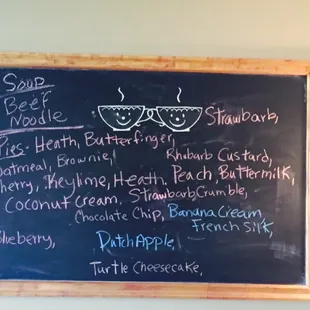 Soup
Beef
Noodle
Strawbarb,
Pies- Heath, Butterfinger,
Oatmeal, Brownie, Rhubarb Custard,
Cherry, Keylime, Heath, Peach, Buttermilk,
Coconut Cream, Strawbarb Crumble,
Chocolate Chip, Banana Cream,
French Silk,
Blueberry, Dutch Apple,
Turtle Cheesecake,